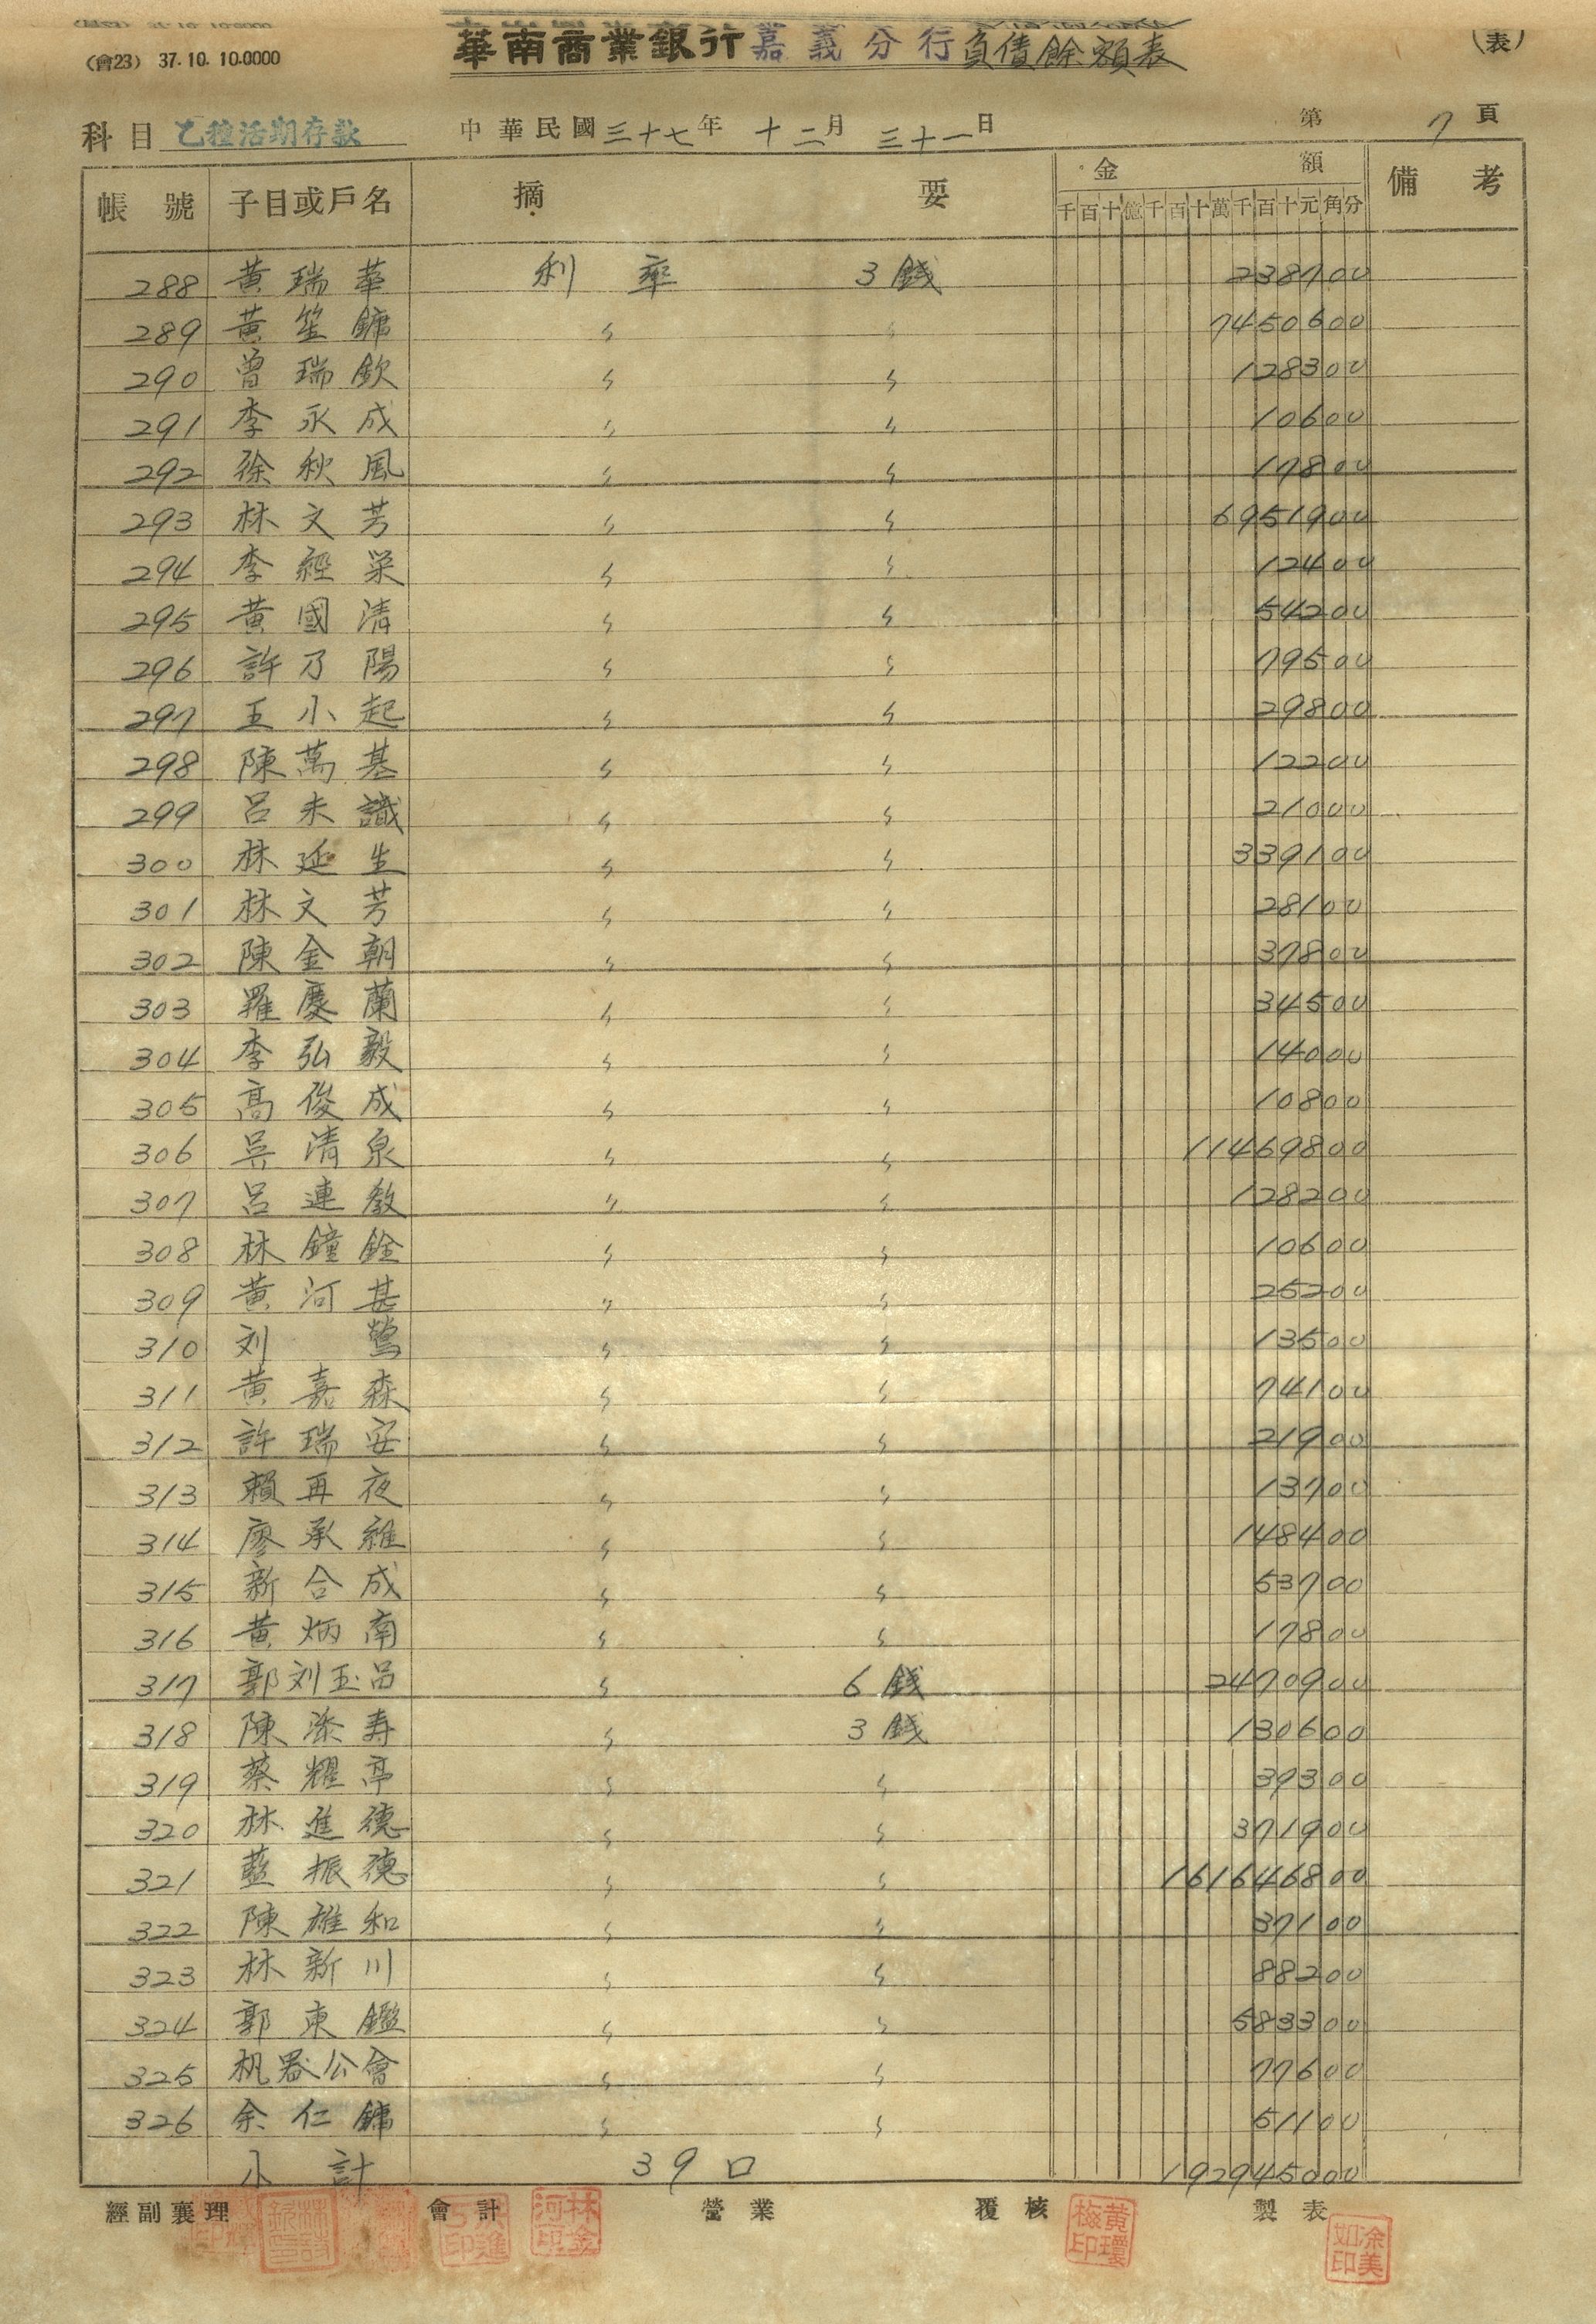 (會23) 37.10.10.0000
華南商業銀行嘉義分行負債餘額表
(表)
科目 乙種活期存款 中華民國三十七年十二月三十一日 第7頁
帳號 子目或戶名 摘要 金額 備考
千百十億千百十萬千百十元角分
288 黃瑞華 利率 3錢 238700
289 黃笙鏞 〃 〃 7450600
290 曾瑞欽 〃 〃 128300
291 李永成 〃 〃 10600
292 徐秋風 〃 〃 17800
293 林文芳 〃 〃 6951900
294 李經栄 〃 〃 12400
295 黃國清 〃 〃 54200
296 許乃陽 〃 〃 79500
297 王小起 〃 〃 29800
298 陳萬基 〃 〃 12200
299 呂未識 〃 〃 21000
300 林延生 〃 〃 339100
301 林文芳 〃 〃 28100
302 陳金朝 〃 〃 37800
303 羅慶蘭 〃 〃 34500
304 李弘毅 〃 〃 14000
305 高俊成 〃 〃 10800
306 吳清泉 〃 〃 11469800
307 呂連教 〃 〃 128200
308 林鐘銓 〃 〃 10600
309 黃河甚 〃 〃 25200
310 刘鶯 〃 〃 13500
311 黃嘉森 〃 〃 74100
312 許瑞安 〃 〃 21900
313 賴再夜 〃 〃 13700
314 廖承維 〃 〃 148400
315 新合成 〃 〃 53700
316 黃炳南 〃 〃 17800
317 郭刘玉呂 〃 6錢 2470900
318 陳添寿 〃 3錢 130600
319 蔡耀亭 〃 〃 39300
320 林進德 〃 〃 371900
321 藍振德 〃 〃 161646800
322 陳雄和 〃 〃 37100
323 林新川 〃 〃 88200
324 郭東鑑 〃 〃 583300
325 机器公會 〃 〃 77600
326 余仁鏞 〃 〃 51100
小計 39口 192945000
經副襄理 會計 營業 覆核 製表
林金河印
黃瓊梅印
涂美如印